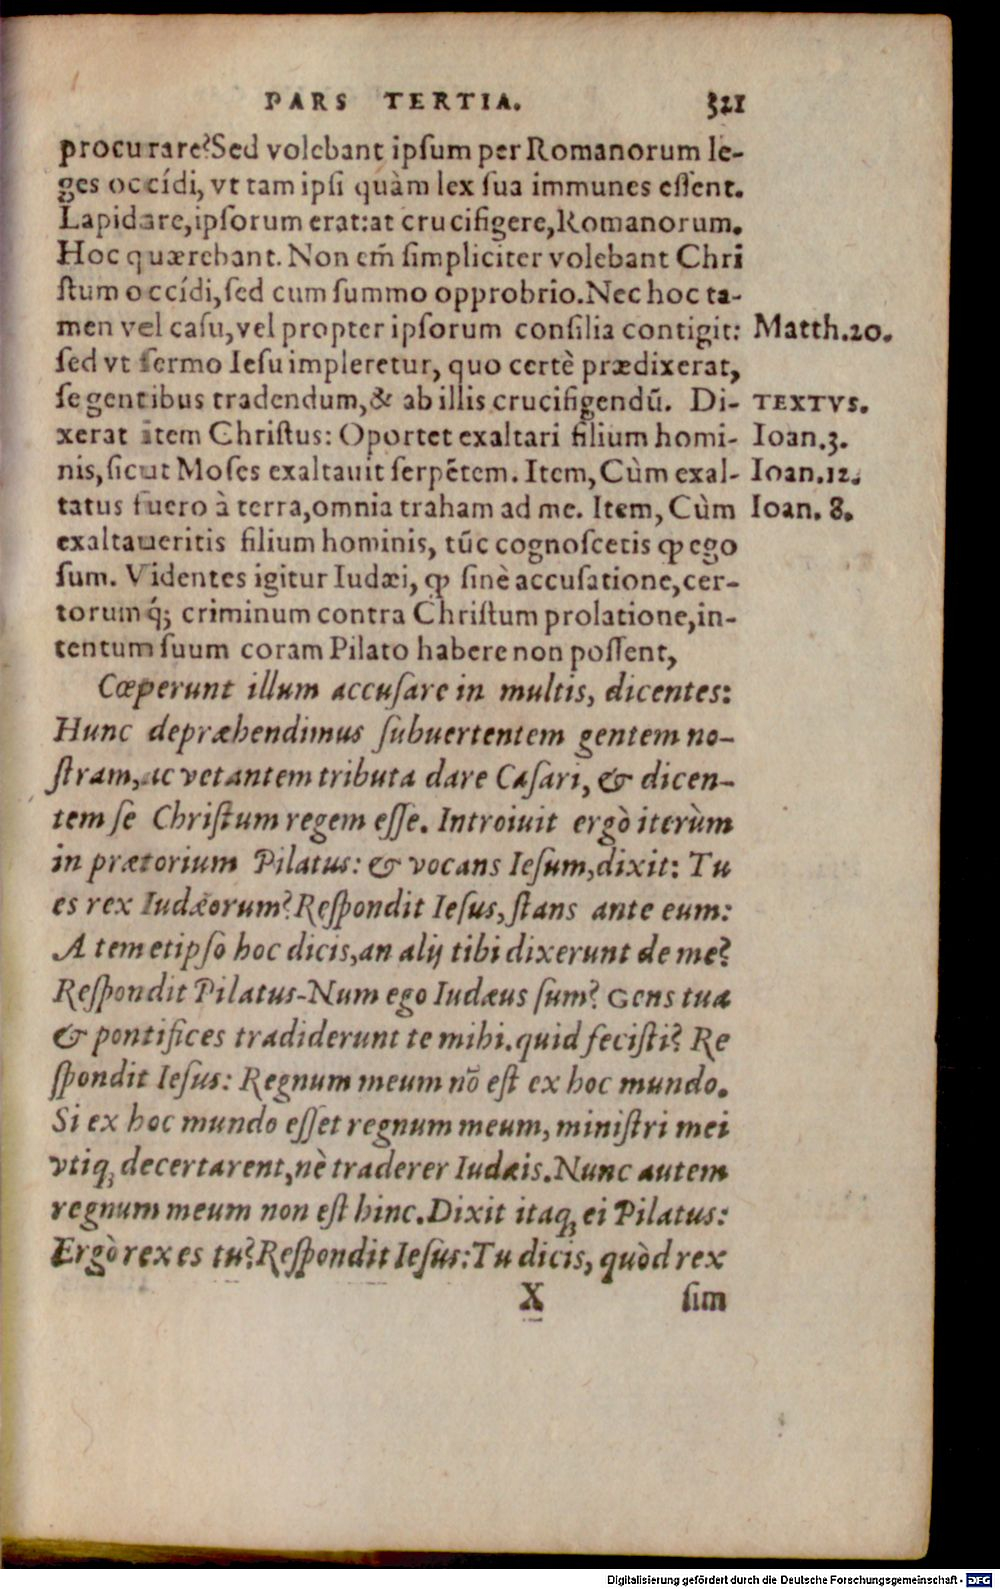 PARS TERTIA. 321
procurare?Sed volebant ipſum per Romanorum le-
ges occídi, vt tam ipſi quàm lex ſua immunes eſſent.
Lapidare,ipſorum erat:at crucifigere,Romanorum.
Hoc quærebant. Non em̃ ſimpliciter volebant Chri
ſtum occídi,ſed cum ſummo opprobrio.Nec hoc ta-
men vel caſu,vel propter ipſorum conſilia contigit: Matth.20.
ſed vt ſermo Ieſu impleretur, quo certè prædixerat,
ſe gentibus tradendum,& ab illis crucifigendũ. Di- TEXTVS.
xerat item Chriſtus: Oportet exaltari filium homi- Ioan.3.
nis,ſicut Moſes exaltauit ſerpẽtem. Item, Cùm exal- Ioan.12.
tatus fuero à terra,omnia traham ad me. Item, Cùm Ioan. 8.
exaltaueritis filium hominis, tũc cognoſcetis ꝙ ego
ſum. Videntes igitur Iudæi, ꝙ ſinè accuſatione,cer-
torumq́; criminum contra Chriſtum prolatione,in-
tentum ſuum coram Pilato habere non poſſent,
Cœperunt illum accuſare in multis, dicentes:
Hunc depræhendimus ſubuertentem gentem no-
ſtram, ac vetantem tributa dare Cæſari, & dicen-
tem ſe Chriſtum regem eſſe. Introiuit ergò iterùm
in prætorium Pilatus: & vocans Ieſum,dixit: Tu
es rex Iudæorum?Reſpondit Ieſus, ſtans ante eum:
A temetipſo hoc dicis,an alij tibi dixerunt de me?
Reſpondit Pilatus-Num ego Iudæus ſum? Gens tua
& pontifices tradiderunt te mihi.quid feciſti? Re
ſpondit Ieſus: Regnum meum nõ eſt ex hoc mundo.
Si ex hoc mundo eſſet regnum meum, miniſtri mei
vtiq; decertarent,nè traderer Iudæis.Nunc autem
regnum meum non eſt hinc.Dixit itaq; ei Pilatus:
Ergò rex es tu?Reſpondit Ieſus:Tu dicis, quòd rex
X ſim
Digitalisierung gefördert durch die Deutsche Forschungsgemeinschaft - DFG